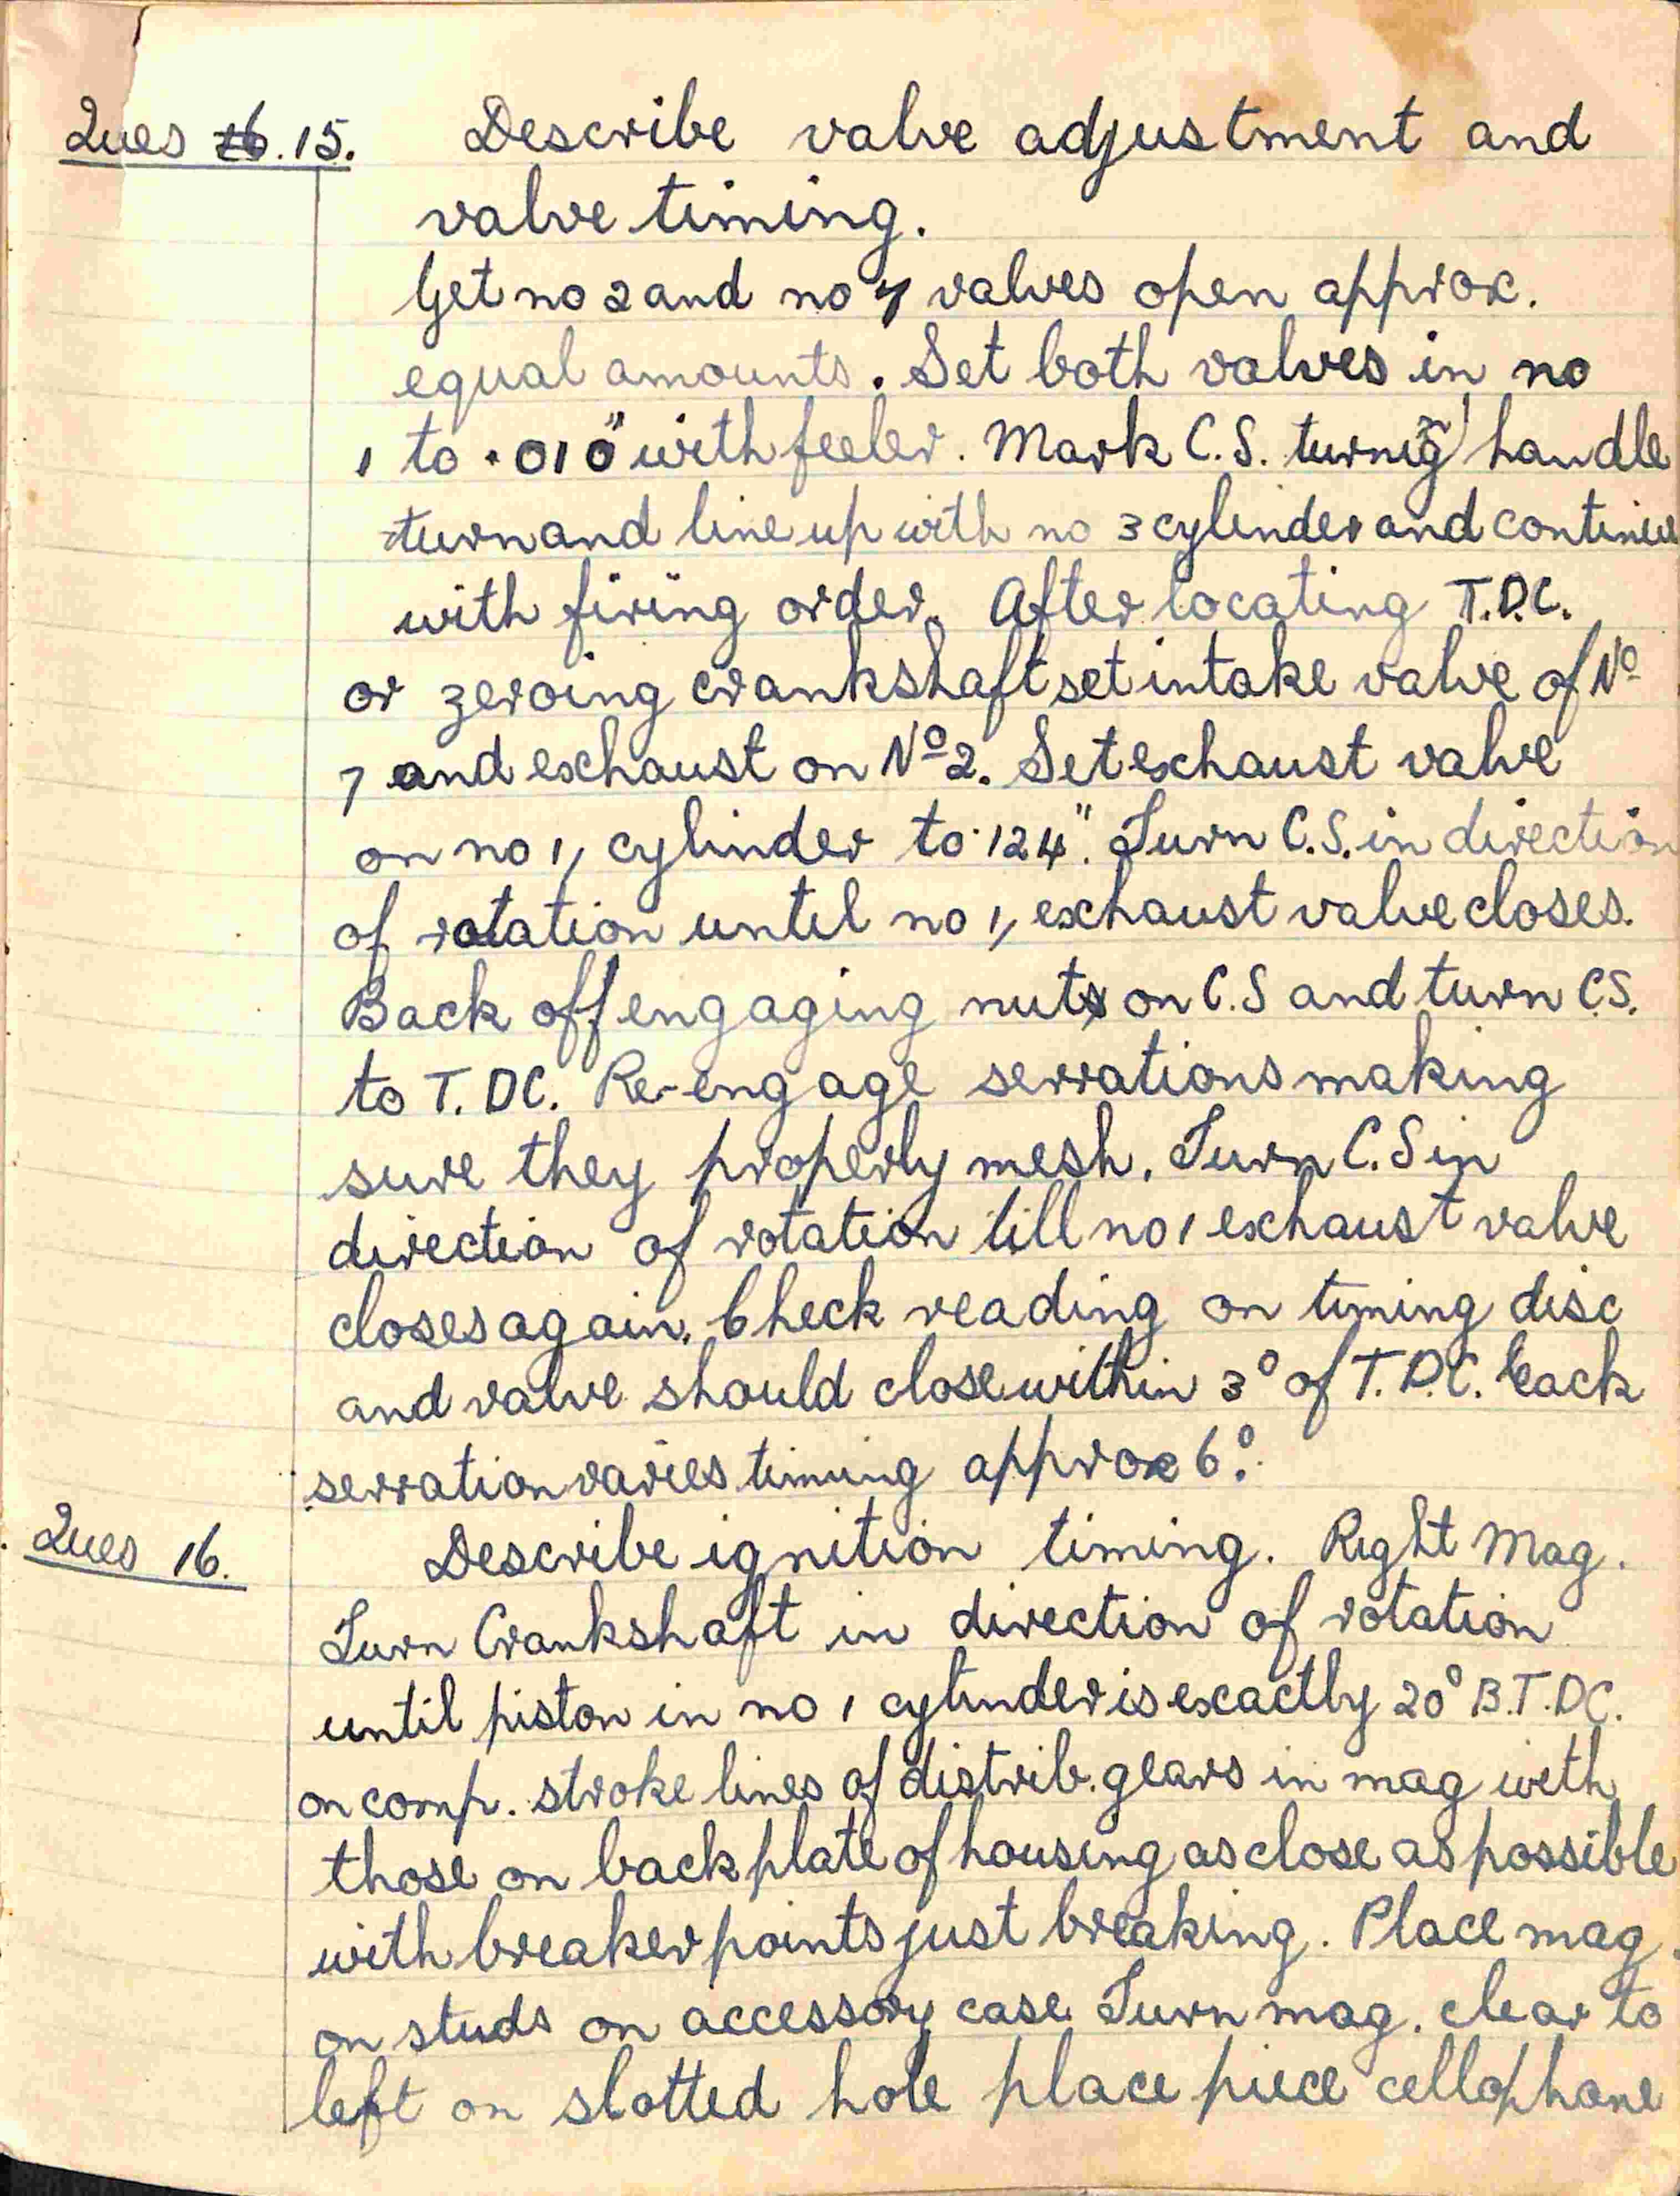 Ques 16. 15. Describe valve adjustment and
valve timing.
Get no 2 and no 7 valves open approx.
equal amounts. Set both valves in no
1 to .010" with feeler. Mark C.S. turnig handle
turn and line up with no 3 cylinder and continue
with firing order. After locating T.D.C.
or zeroing crankshaft set intake valve of No
7 and exhaust on No 2. Set exhaust valve
on no 1, cylinder to .124". Turn C.S. in direction
of rotation until no 1, exhaust valve closes.
Back off engaging nuts on C.S and turn C.S.
to T.DC. Re-engage serrations making
sure they properly mesh. Turn C.S in
direction of rotation till no 1 exhaust valve
closes again. Check reading on timing disc
and valve should close within 3° of T.D.C. Each
serration varies timing approx 6°.
Ques 16. Describe ignition timing. Right Mag.
Turn Crankshaft in direction of rotation
until piston in no 1 cylinder is exactly 20° B.T.DC.
on comp. stroke lines of distrib. gears in mag with
those on back plate of housing as close as possible
with breaker points just breaking. Place mag.
on studs on accessory case. Turn mag. clear to
left on slotted hole place piece cellophane